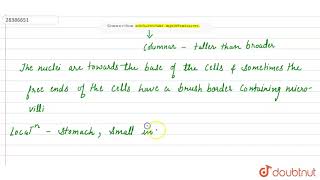 28386651
columnar - taller than broader
The nuclei are towards the base of the cells & sometimes the
free ends of the cells have a brush border containing micro-
villi
Locatⁿ - Stomach, Small in
doubtnut